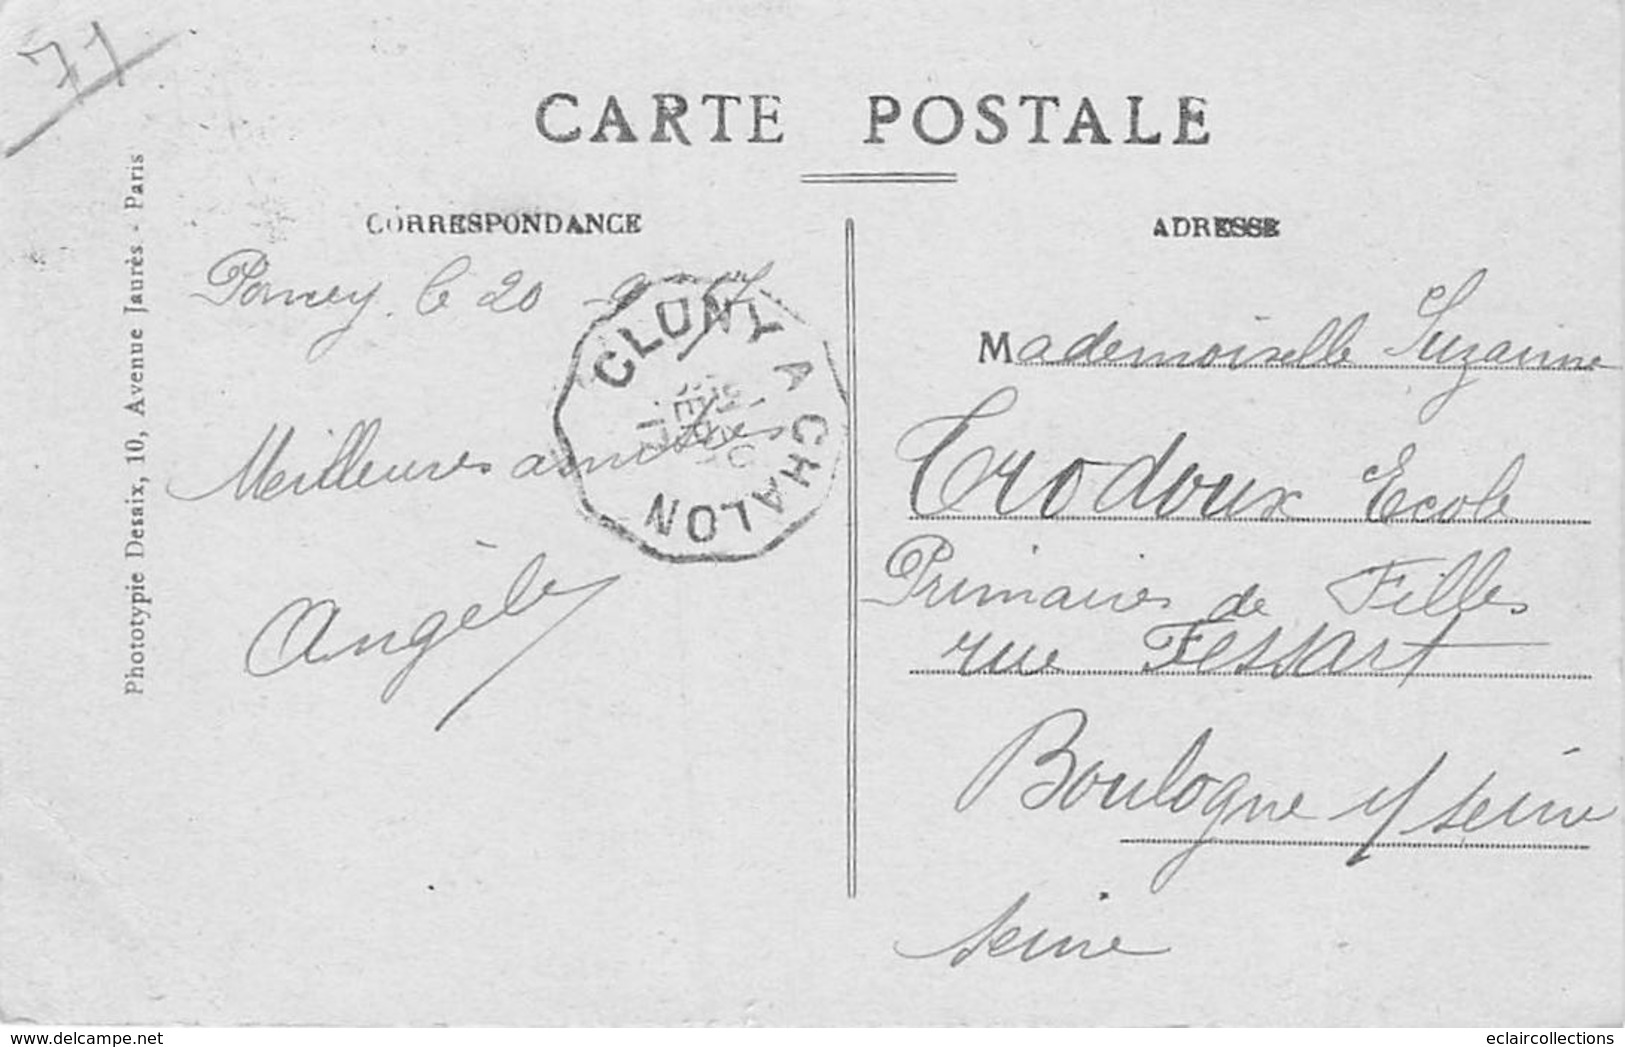 71
CARTE POSTALE
CORRESPONDANCE
ADRESSE
le 20
Meilleures amitiés
Angèle
CLUNY A CHALON
Mademoiselle Suzanne
Trodoux Ecole
Primaires de Filles
rue Fessart
Boulogne s/ seine
seine
Phototypie Desaix, 10, Avenue Jaurès - Paris
delcampe.net
eclaircollections